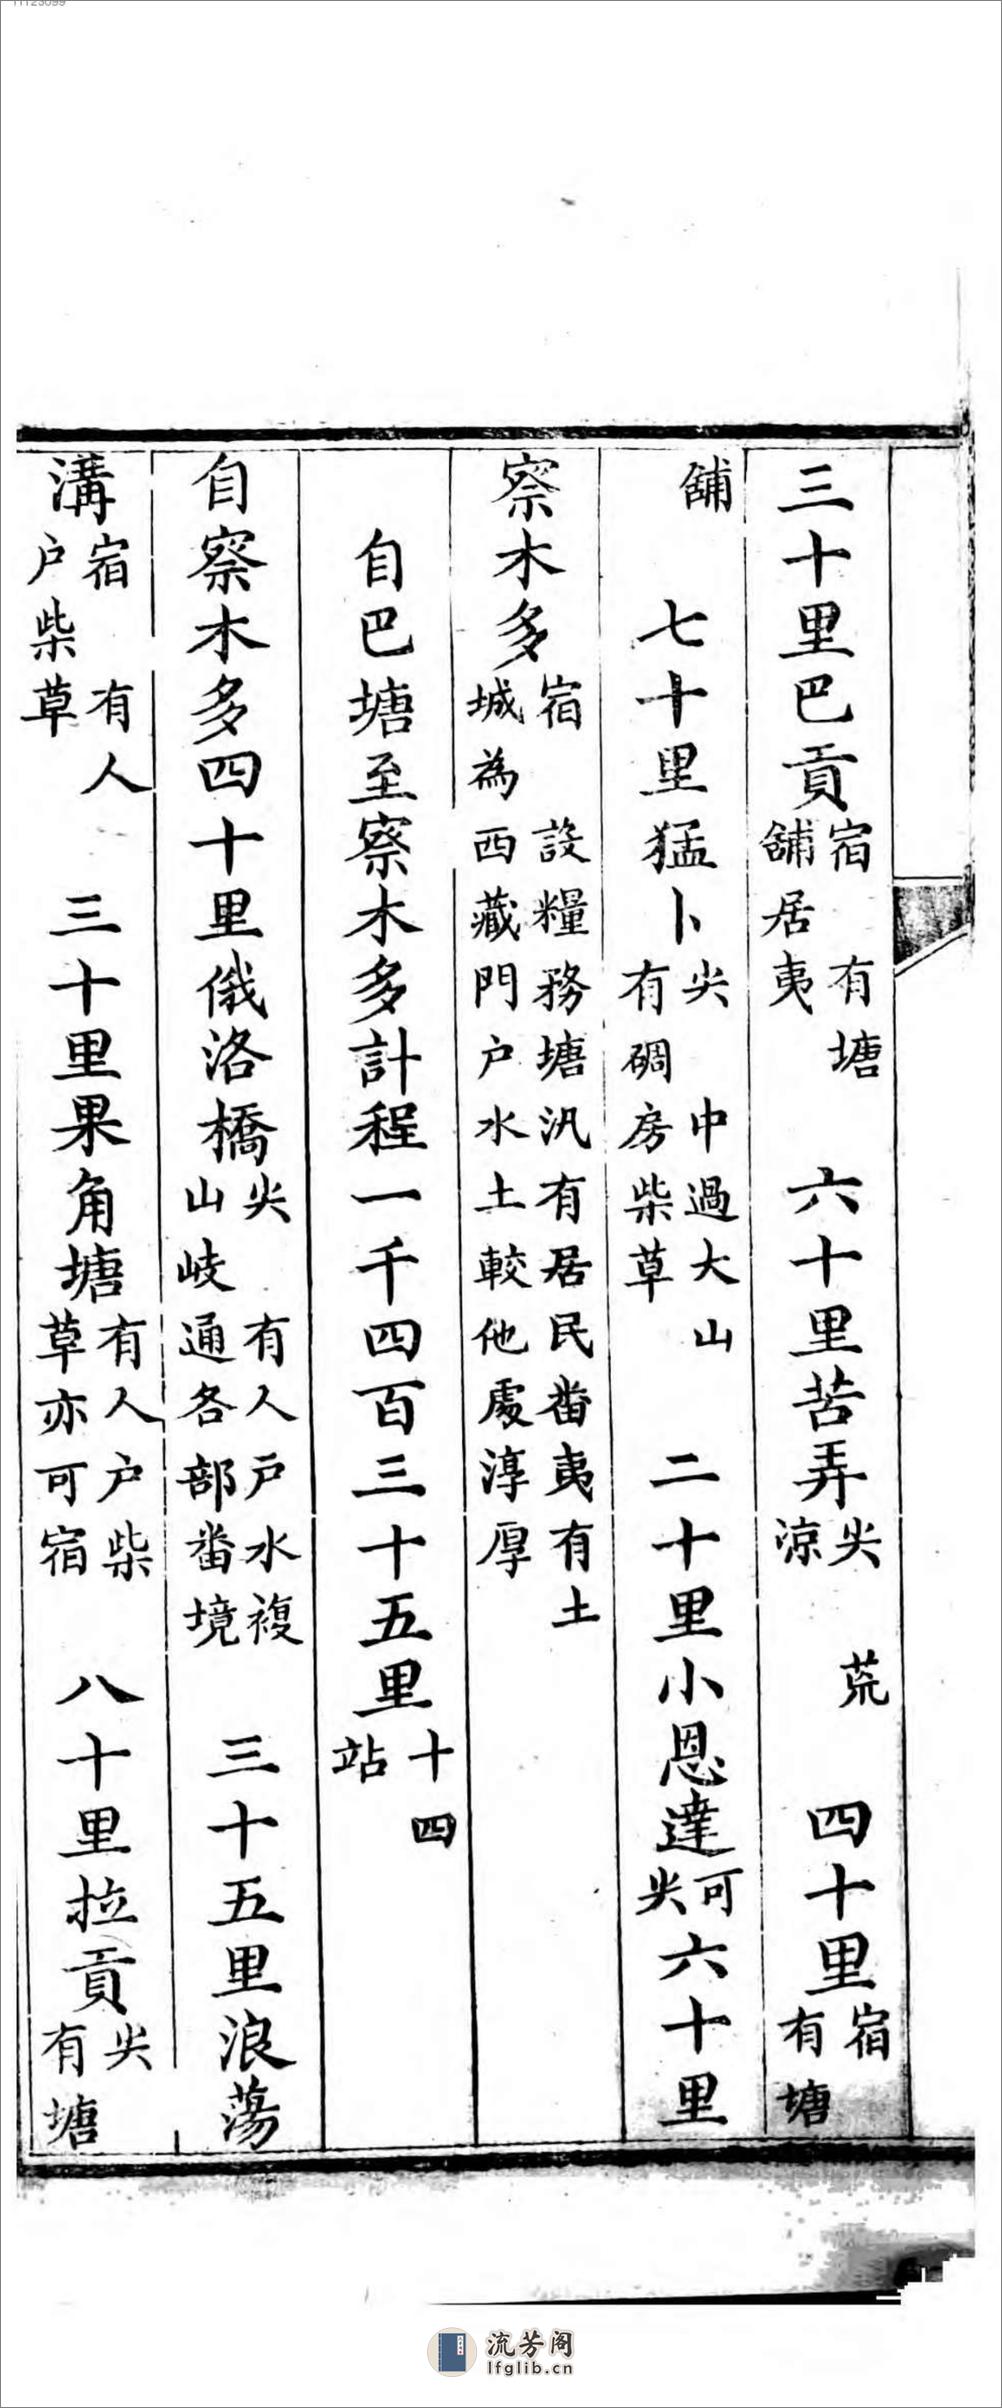 三十里巴貢宿 有塘舖居夷 六十里苦弄尖 荒涼 四十里宿有塘
舖 七十里猛卜尖 中過大山有碉房柴草 二十里小恩達可尖六十里
察木多宿 設糧務塘汛有居民畨夷有土城為西藏門户水土較他處淳厚
自巴塘至察木多計程一千四百三十五里十四站
自察木多四十里俄洛橋尖 有人戸水複山岐通各部畨境 三十五里浪蕩
溝宿 有人户柴草 三十里果角塘有人户柴草亦可宿 八十里拉貢尖有塘
流芳阁
lfglib.cn